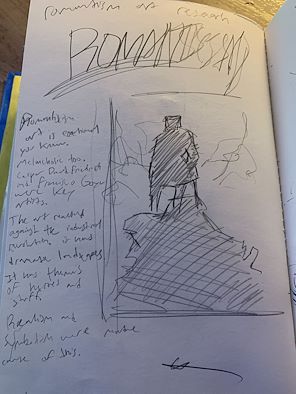 romantism art research
ROMANTISM
Romantism
art is emotional
you know.
Melancholic too.
Casper David Friedrich
and Francisco Goya
were key
artists.
The art reacted
against the industrial
revolution it used
dramatic landscapes
It was themes
of heroes and
stuff.
Realism and
Symbolism were made
cause of this.